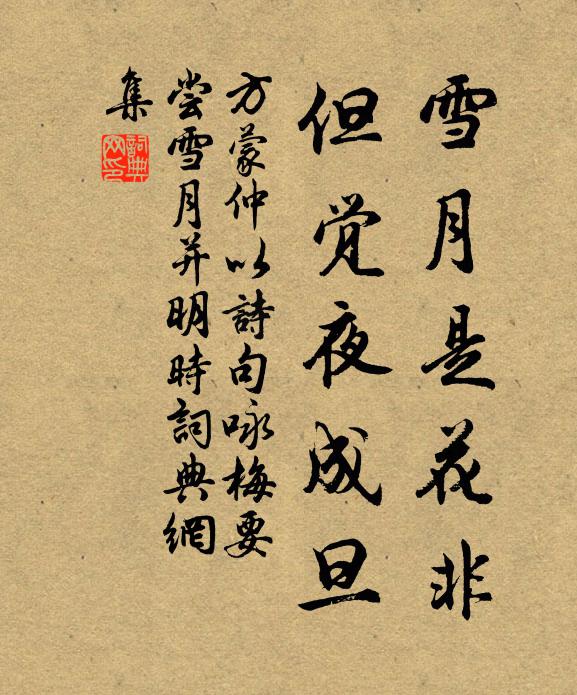 雪月是花非
但觉夜成旦
方蒙仲以詩句咏梅要
尝雪月并明時詞典網
集
詞典網印